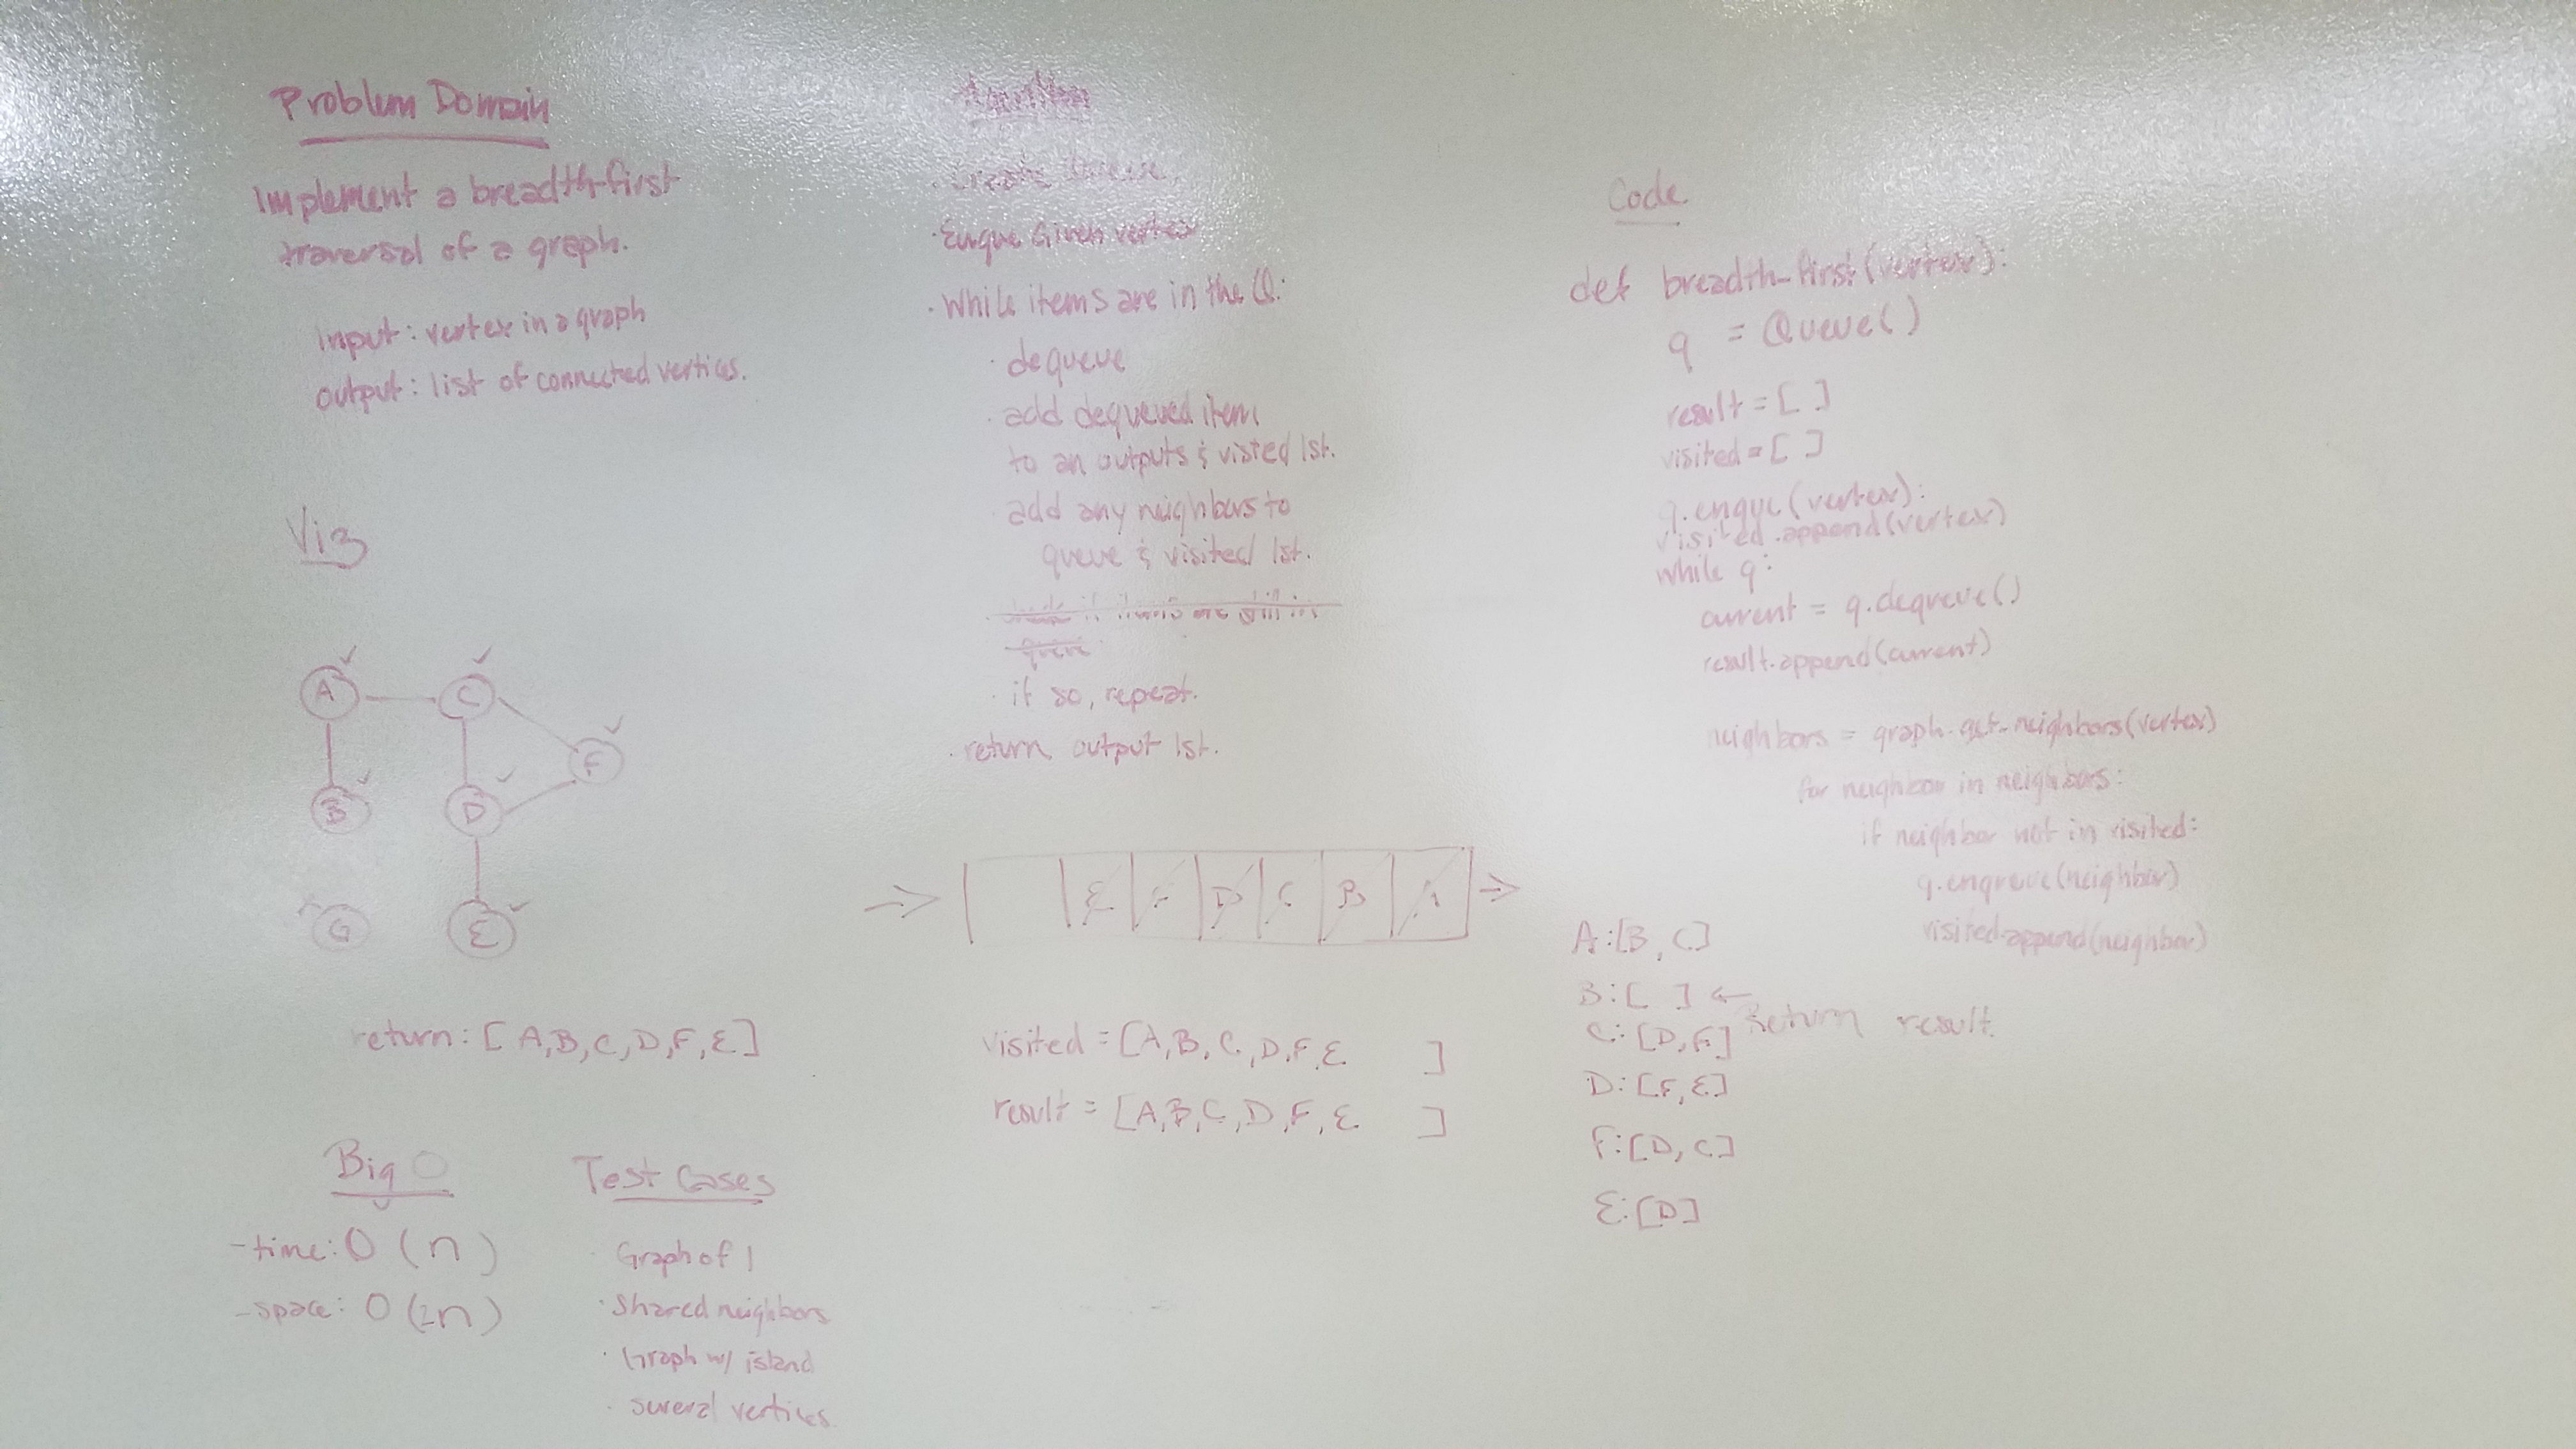 Problem Domain
Implement a breadth-first
traversal of a graph.
input: vertex in a graph
output: list of connected vertices.
Viz
A
C
F
B
D
G
E
return: [A,B,C,D,F,E]
Big O
-time: O (n)
-space: O (2n)
Test Cases
· Graph of 1
· Shared neighbors
· Graph w/ island
· several vertices
Algorithm
· Create Queue.
· Enque Given vertex
· While items are in the Q:
· dequeue
· add dequeued item
to an outputs & visted lst.
· add any neighbors to
queue & visited lst.
if items are still in
queue
· if so, repeat.
· return output lst.
E F D C B A
visited = [A,B,C,D,F,E ]
result = [A,B,C,D,F,E ]
Code
def breadth-first(vertex):
q = Queue()
result = [ ]
visited = [ ]
q.enque(vertex):
visited.append(vertex)
while q:
current = q.dequeue()
result.append(current)
neighbors = graph.get-neighbors(vertex)
for neighbor in neighbors:
if neighbor not in visited:
q.enqueue(neighbor)
visited.append(neighbor)
return result.
A:[B, C]
B:[ ] ←
C:[D,F]
D:[F,E]
F:[D, C]
E:[D]